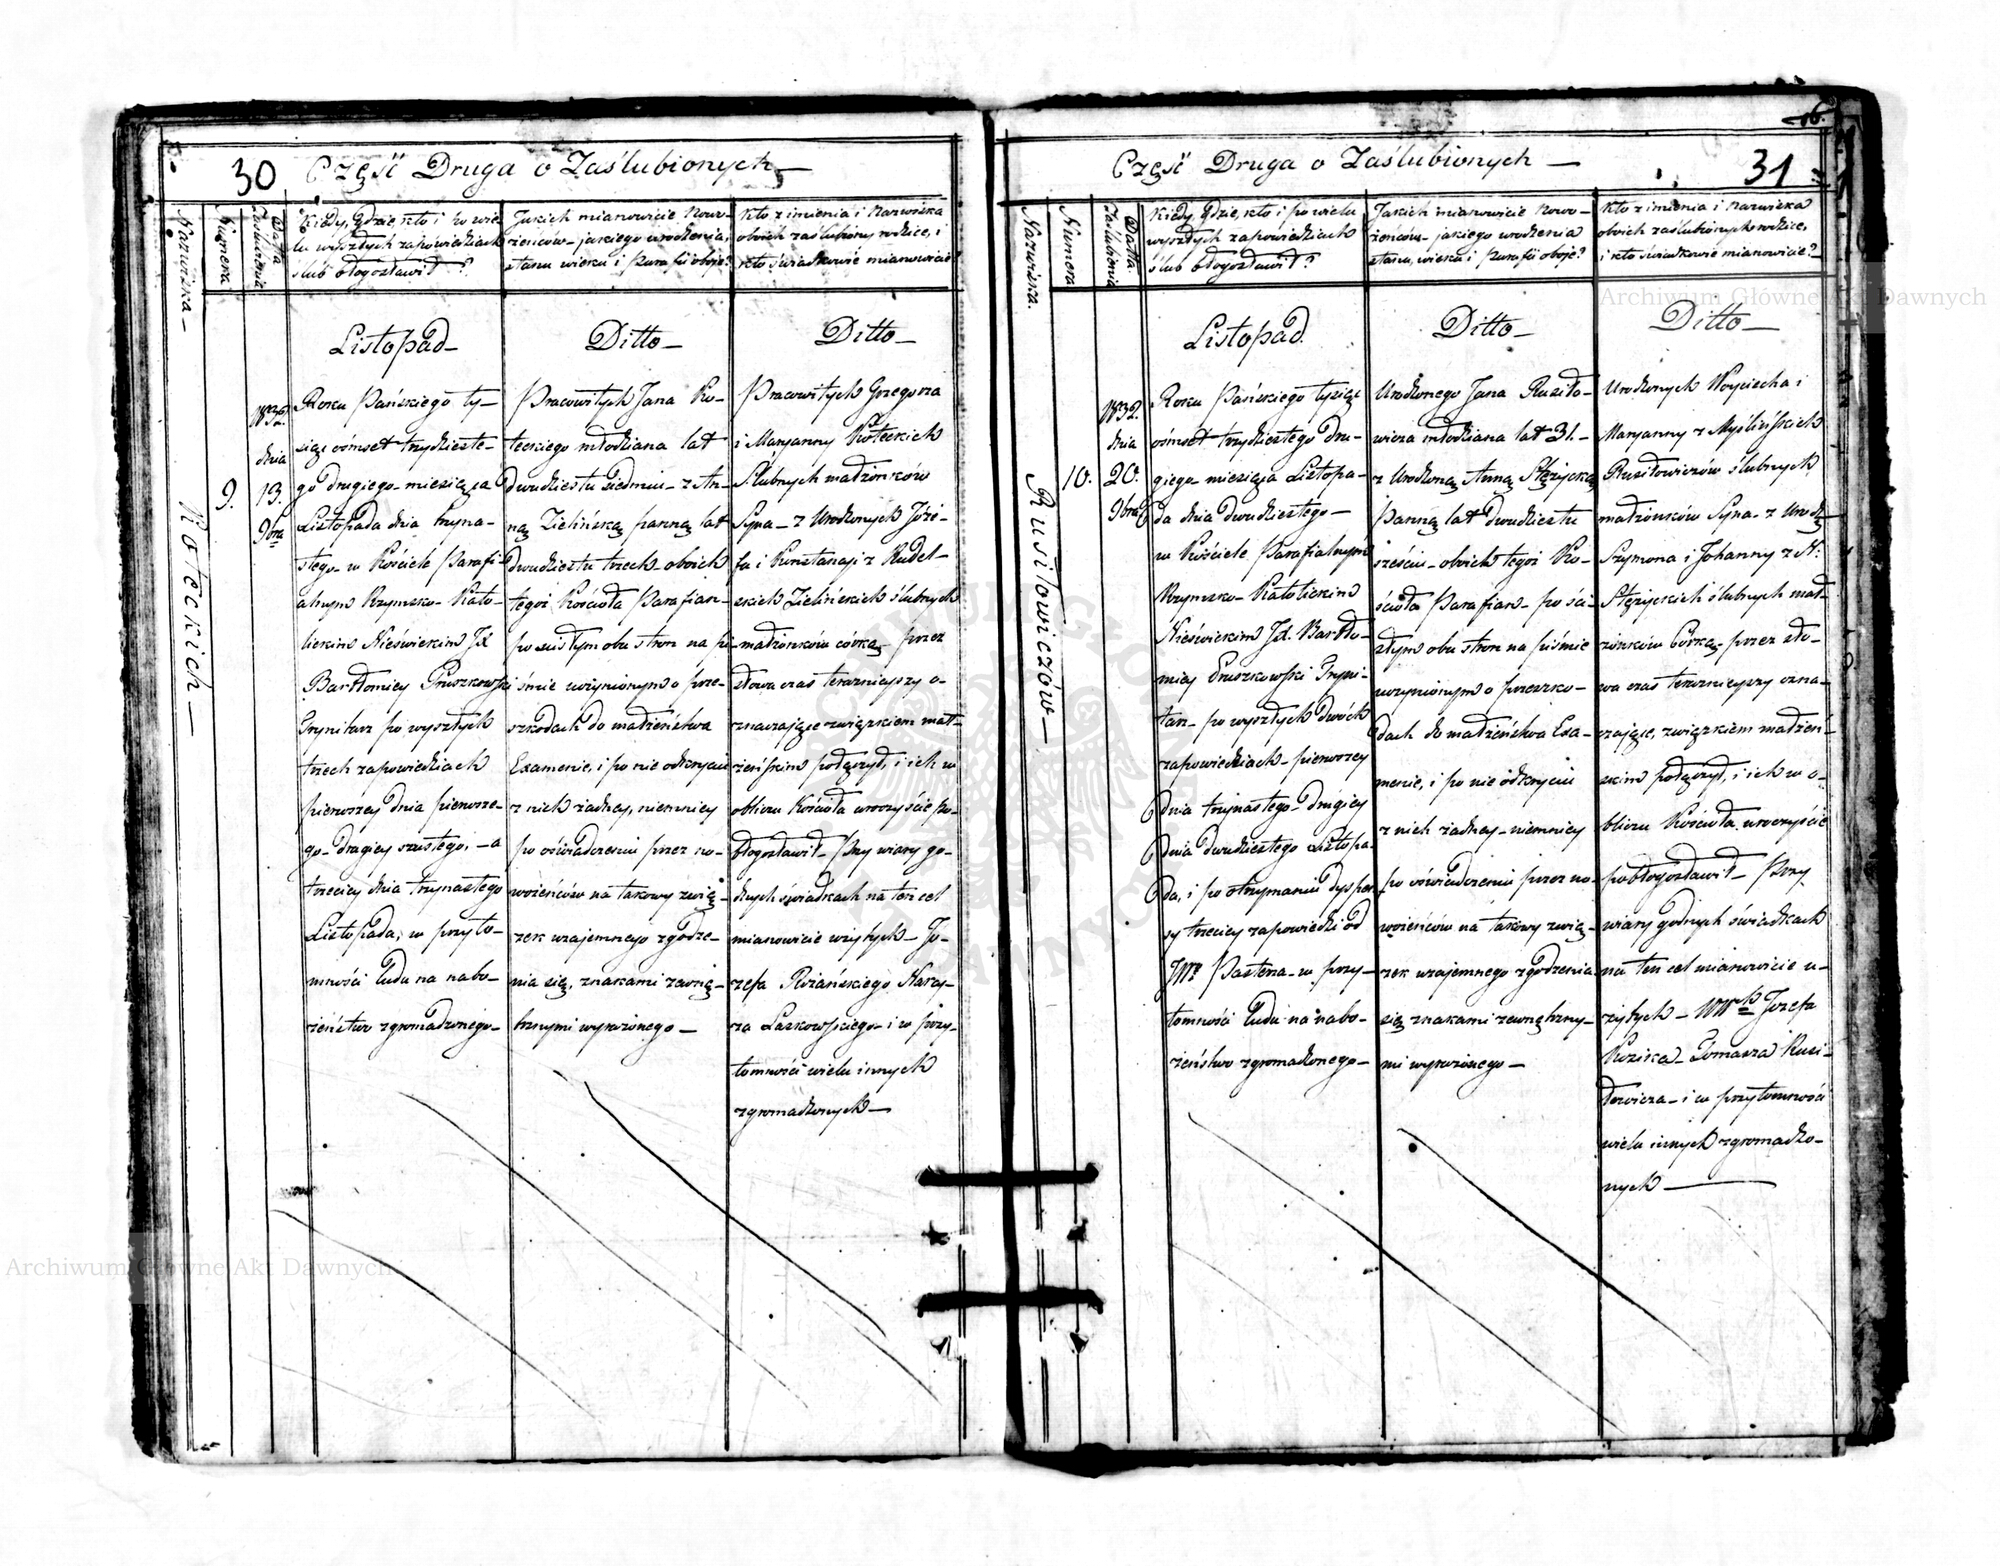 30 Część Druga o Zaślubionych
Nazwiska
Numera
Datta Zaślubienia
Kiedy, Gdzie, kto i po wie-
lu wyszłych zapowiedziach
ślub błogosławił?
Jakich mianowicie Nowo-
żeńców jakiego urodzenia,
stanu wieku i Parafii oboje?
Kto z imienia i Nazwiska
oboich zaślubiony rodzice, i
kto świadkowie mianowicie?
Listopad
Ditto
Ditto
Koteckich
9.
1832.
dnia
13.
9bra
Roku Pańskiego ty-
siąc ośmset trzydzieste-
go drugiego miesiąca
Listopada dnia trzyna-
stego w Kościele Parafi-
alnym Rzymsko Kato-
lickim Nieświezkim Jx
Bartłomiey Gruszkowski
Trynitarz po wyszłych
trzech zapowiedziach
pierwszey dnia pierwsze-
go drugiey szustego, a
trzeciey dnia trzynastego
Listopada, w przyto-
mności ludu na nabo-
żeństwo zgromadzonego
Pracowitych Jana Ko-
teckiego młodziana lat
dwudziestu siedmiu z An-
ną Zielińską panną lat
dwudziestu trzech oboich
tegoż Kościoła Parafian
po ścisłym obu stron na pi-
śmie uczynionym o prze-
szkodach do małżeństwa
Examenie, i po nie odkryciu
z nich żadney, niemniey
po oświadczeniu przez no-
wożeńców na takowy zwią-
zek wzajemnego zgodze-
nia się, znakami zewnę-
trznymi wyrażonego
Pracowitych Grzegorza
i Maryanny Koteckich
Slubnych małżonków
Syna z Urodzonych Józe-
fa i Konstancyi z Rudel-
skich Zielińskich ślubnych
małżonków córką przez
słowa czas teraznieyszy o-
znaczaiące związkiem mał-
żeńskim połączył, i ich w
obliczu Kościoła uroczyście po-
błogosławił Przy wiary go-
dnych świadkach na ten cel
mianowicie użytych Jo-
zefa Rożańskiego Karo-
la Laskowskiego i w przy-
tomności wielu innych
zgromadzonych
Część Druga o Zaślubionych 31
Nazwiska.
Numera
Datta. Zaślubienia
Kiedy, Gdzie, kto i po wielu
wyszłych zapowiedziach
ślub błogosławił?
Jakich mianowicie Nowo-
żeńców jakiego urodzenia
stanu, wieku i Parafii oboje?
Kto z imienia i Nazwiska
oboich zaślubionych rodzice,
i kto świadkowie mianowicie?
Listopad.
Ditto
Ditto
Rusiłowiczów
10.
1832.
dnia
20.
9bra
Roku Pańskiego tysiąc
ośmset trzydziestego dru-
giego miesiąca Listopa-
da dnia dwudziestego
w Kościele Parafialnym
Rzymsko Katolickim
Nieświezkim Jx. Bartło-
miey Gruszkowski Tryni-
tarz po wyszłych dwóch
zapowiedziach pierwszey
dnia trzynastego drugiey
dnia dwudziestego Listopa-
da, i po otrzymaniu dyspen-
sy trzeciey zapowiedzi od
JWo Pasterza w przy-
tomności ludu na nabo-
żeństwo zgromadzonego
Urodzonego Jana Rusiło-
wicza młodziana lat 31.
z Urodzoną Anną Stężycką
Panną lat dwudziestu
sześciu oboich tegoż Ko-
ścioła Parafian po ści-
słym obu stron na piśmie
uczynionym o przeszko-
dach do małżeństwa Exa-
menie, i po nie odkryciu
z nich żadney niemniey
po oświadczeniu przez no-
wożeńców na takowy zwią-
zek wzajemnego zgodzenia
się znakami zewnętrzny-
mi wyrażonego
Urodzonych Woyciecha i
Maryanny z Myślińskich
Rusiłowiczów ślubnych
małżonków Syna z Urodz.
Szymona i Johanny z N:
Stężyckich ślubnych mał-
żonków Córką przez sło-
wa czas teraznieyszy ozna-
czaiące, związkiem małżeń-
skim połączył, i ich w o-
bliczu Kościoła uroczyście
pobłogosławił Przy
wiary godnych świadkach
na ten cel mianowicie u-
żytych WWch Jozefa
Kuzika Tomasza Rusi-
łowicza i w przytomności
wielu innych zgromadzo-
nych
Archiwum Główne Akt Dawnych
Archiwum Główne Akt Dawnych